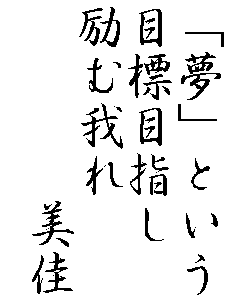 「夢」という
目標目指し
励む我れ
美佳